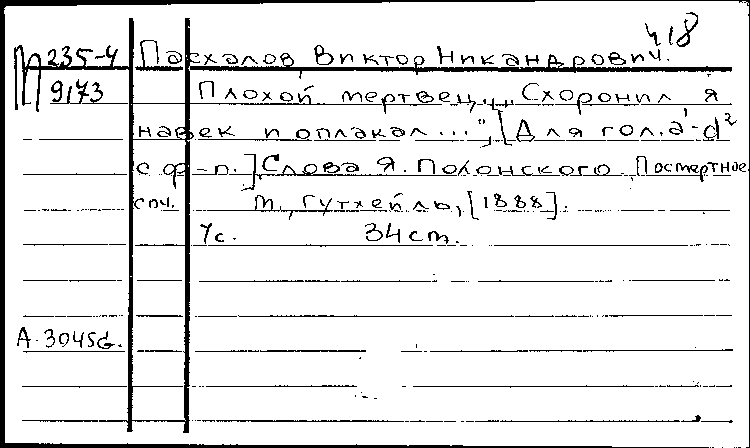 418
П 235-4 Пасхалов, Виктор Никандрович.
9173 Плохой мертвец. „Схоронил я
навек и оплакал...", [Для гол. a¹-d²
с ф-п.] Слова Я. Полонского. Посмертное
соч. М., Гутхейль, [1888].
7с. 34 cm.
А-3045